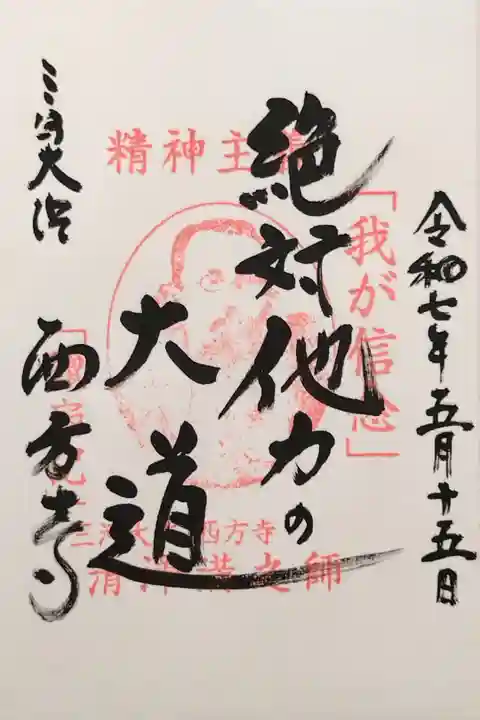 令和七年五月十五日
絶対他力の
大道
三河大浜
西方寺
精神主義
「我が信念」
三河大浜 西方寺
清沢満之師